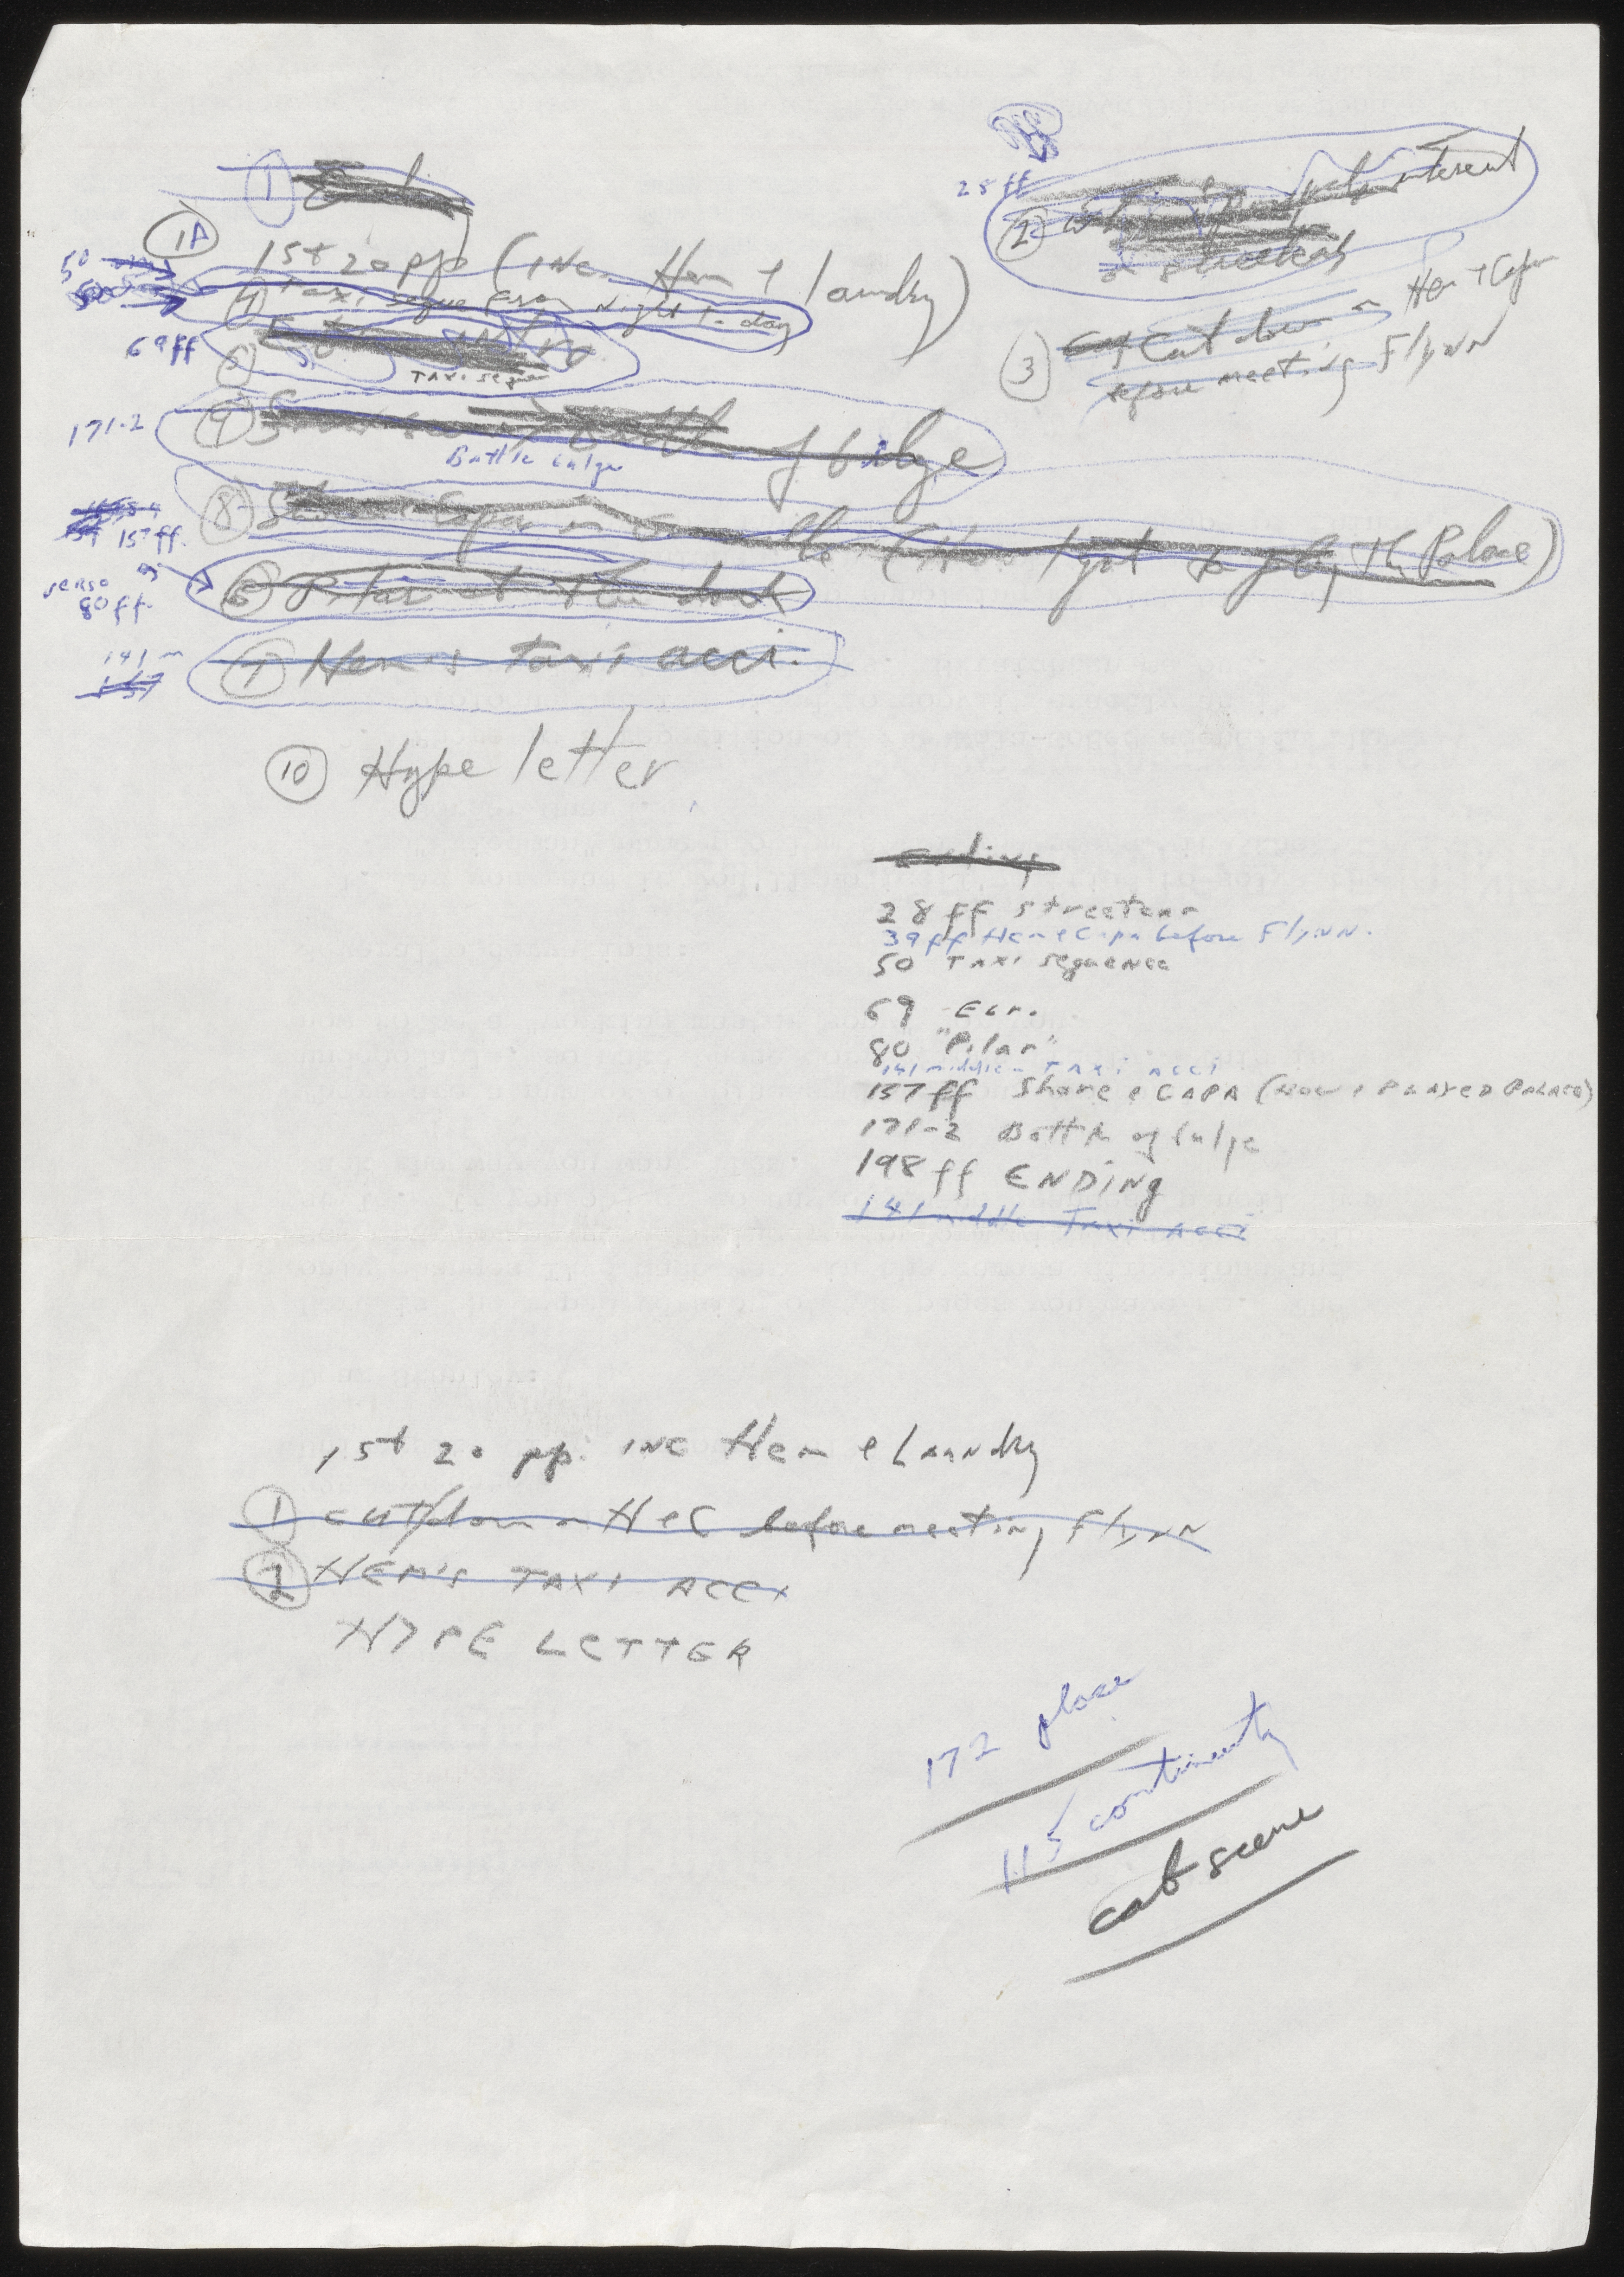 1
1A 1st 20 pp (inc. Hem & laundry)
50
4 Taxi segue from Night to day
69ff
5
TAXi segue
171-2
9 Battle of bulge
Battle bulge
157ff.
8 Capa in (How I got to play the Palace)
verso
80ff.
6 Pilar at the dock
141 m
157
7 Hem's taxi acci.
10 Hype letter
25ff
2 interest
streetcar
3 Cut down on Hem & Capa
before meeting Flynn
ending
28ff streetcar
39ff Hem & Capa before Flynn.
50 TAXi segueNce
69 Ecr.
80 "Pilar"
141 middle TAXi acci
157ff Shore & CAPA (How I PLAYED PALACE)
171-2 Battle of bulge
198ff ENDiNg
141 middle Taxi acci
1st 20 pp. iNc Hem & Laundry
1 cut down on H & C before meeting Flynn
2 HEM'S TAXI ACCi
HYPE LETTER
172 place
115 continuity
cab scene